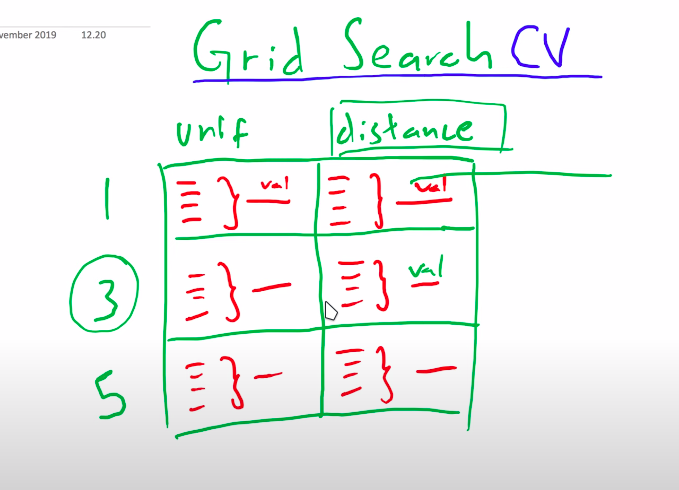 vember 2019 12.20
Grid Search CV
unif distance
1 val val
3 val
5